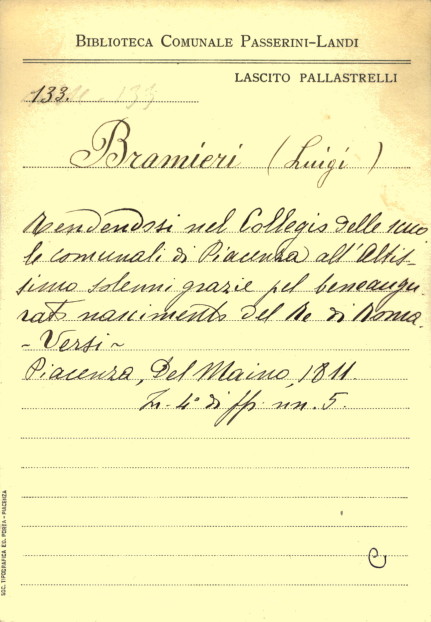 BIBLIOTECA COMUNALE PASSERINI-LANDI
LASCITO PALLASTRELLI
133.
Bramieri (Luigi)
Rendendosi nel Collegio delle scuo
le comunali di Piacenza all'Altis-
simo solenni grazie pel beneaugu
rato nascimento del Re di Roma-
- Versi -
Piacenza, Del Maino, 1811.
In-4° di ff. nn. 5.
SOC. TIPOGRAFICA ED. PORTA - PIACENZA